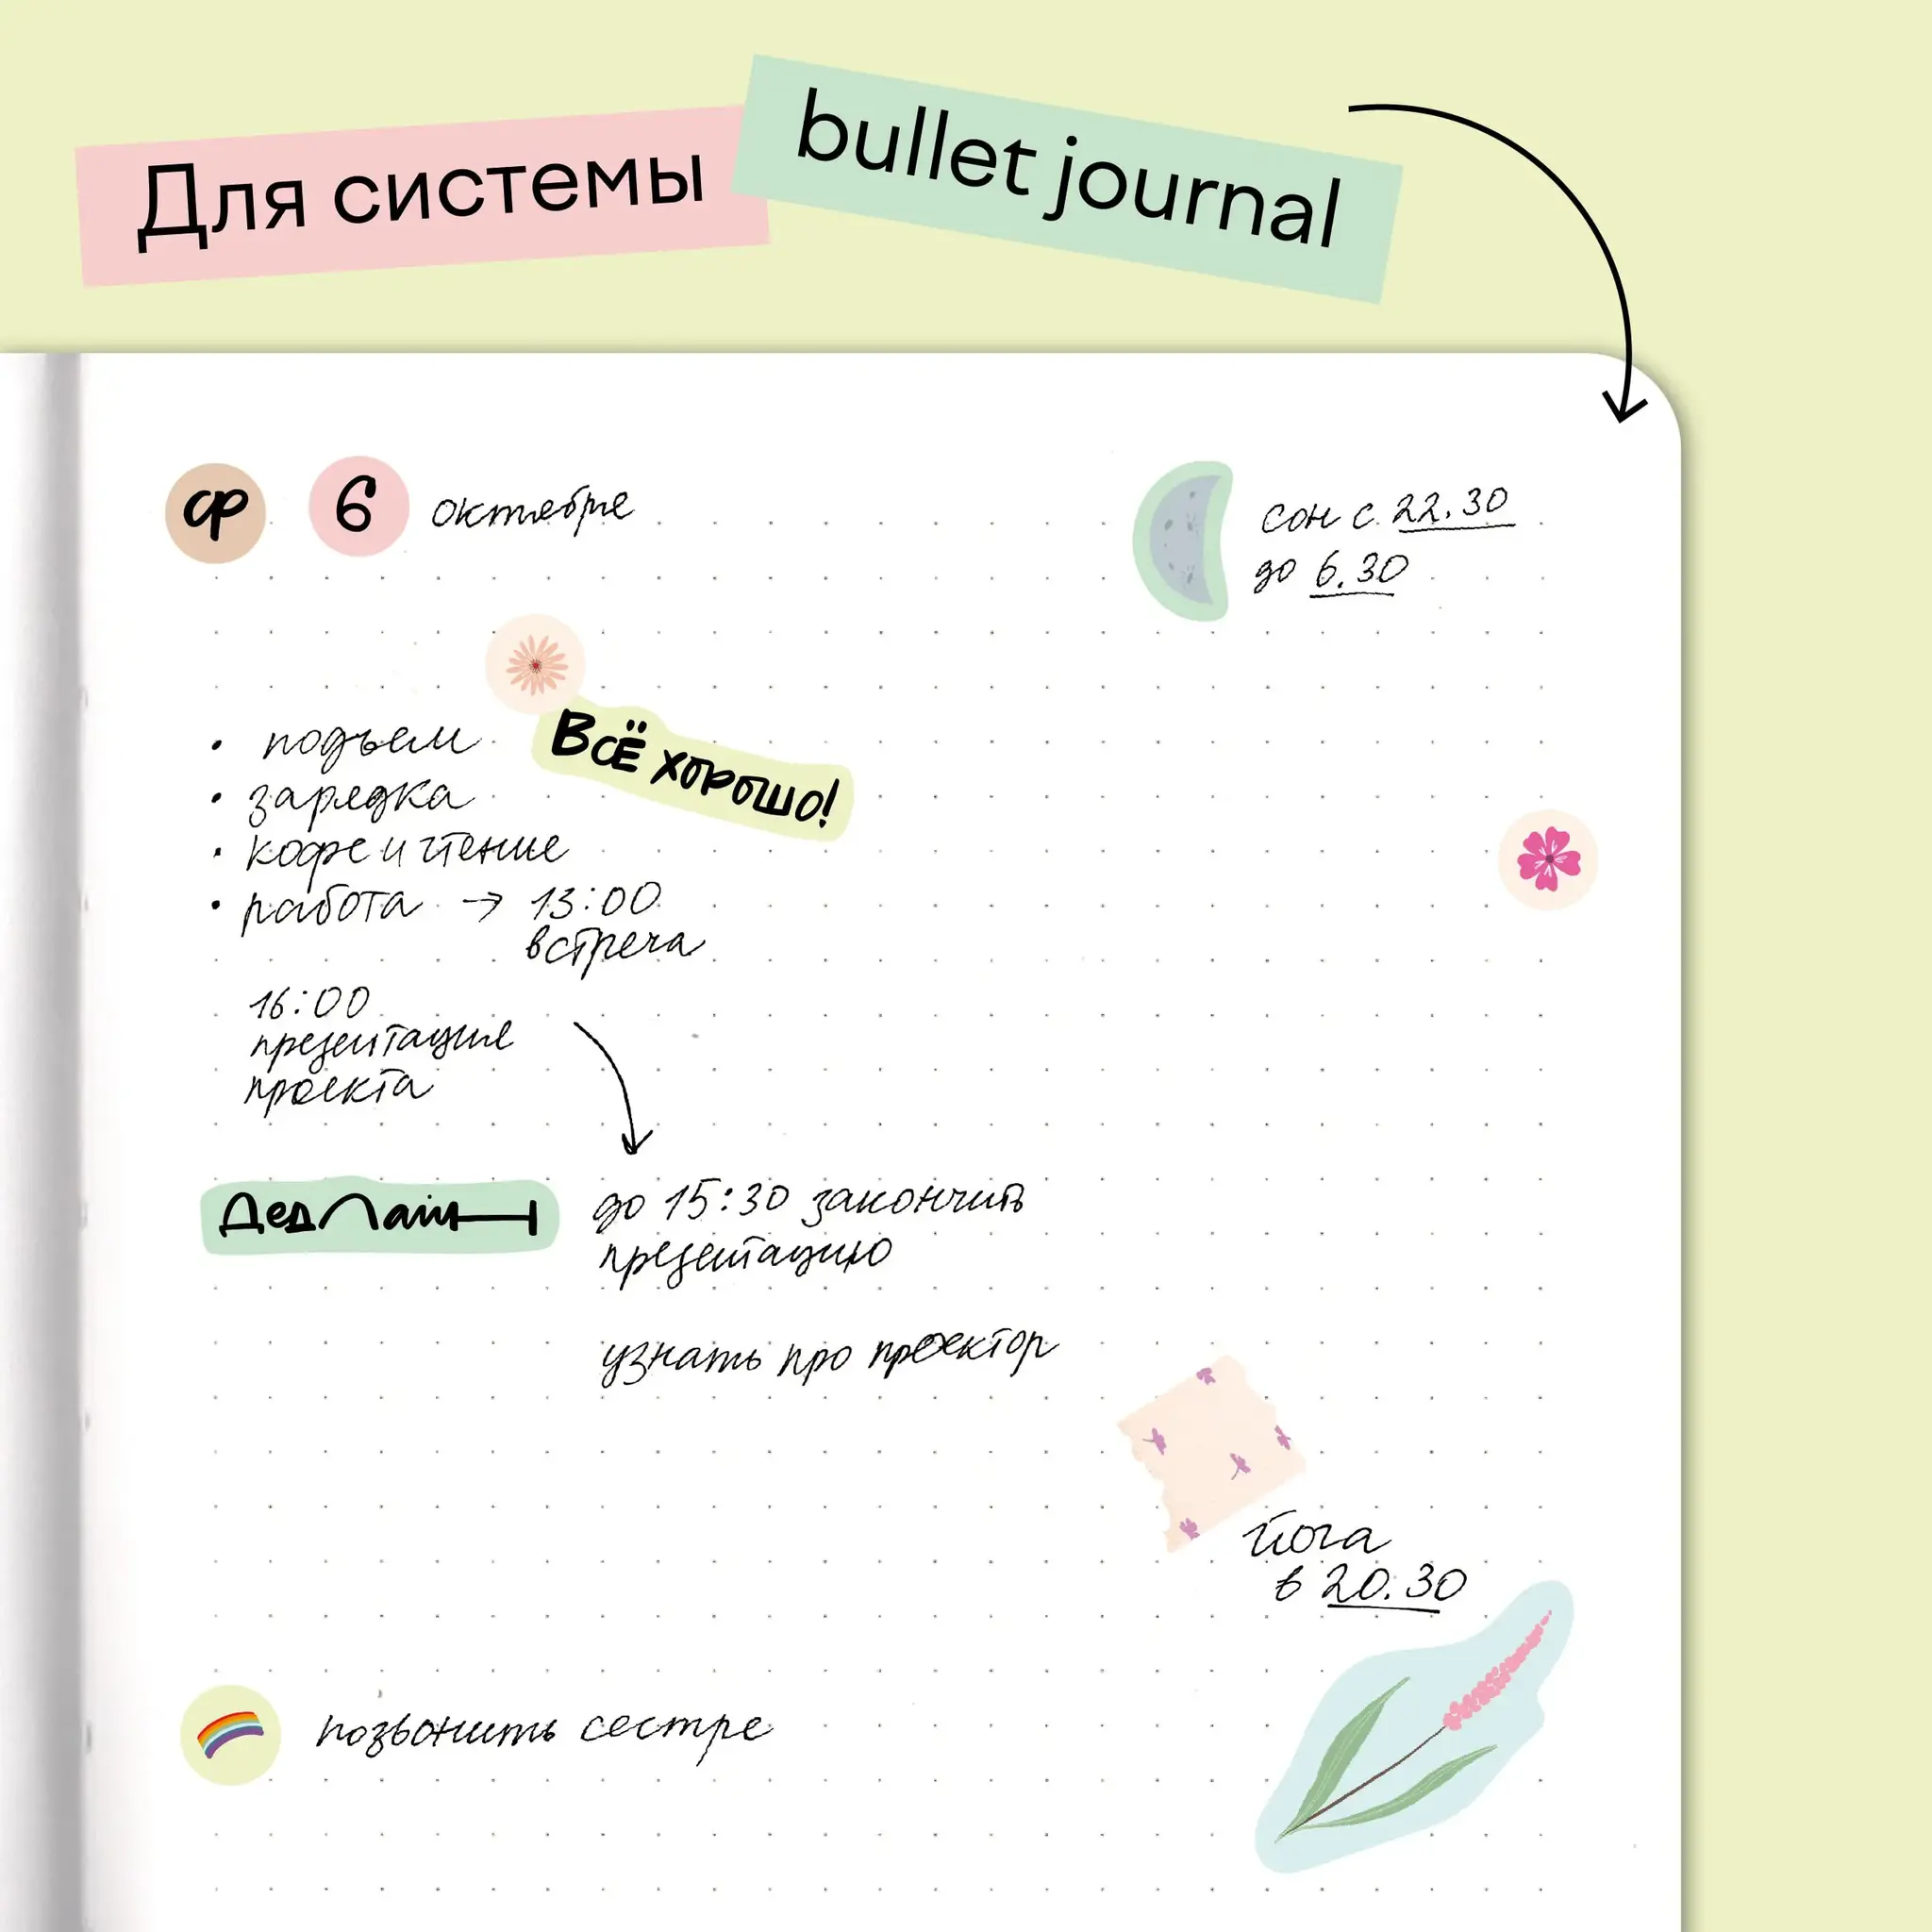 Для системы bullet journal
ср 6 октября
сон с 22.30
до 6.30
• подъем
Всё хорошо!
• зарядка
• кофе и чтение
• работа → 13:00
встреча
16:00
презентация
проекта
Дедлайн
до 15:30 закончить
презентацию
узнать про проектор
йога
в 20.30
позвонить сестре